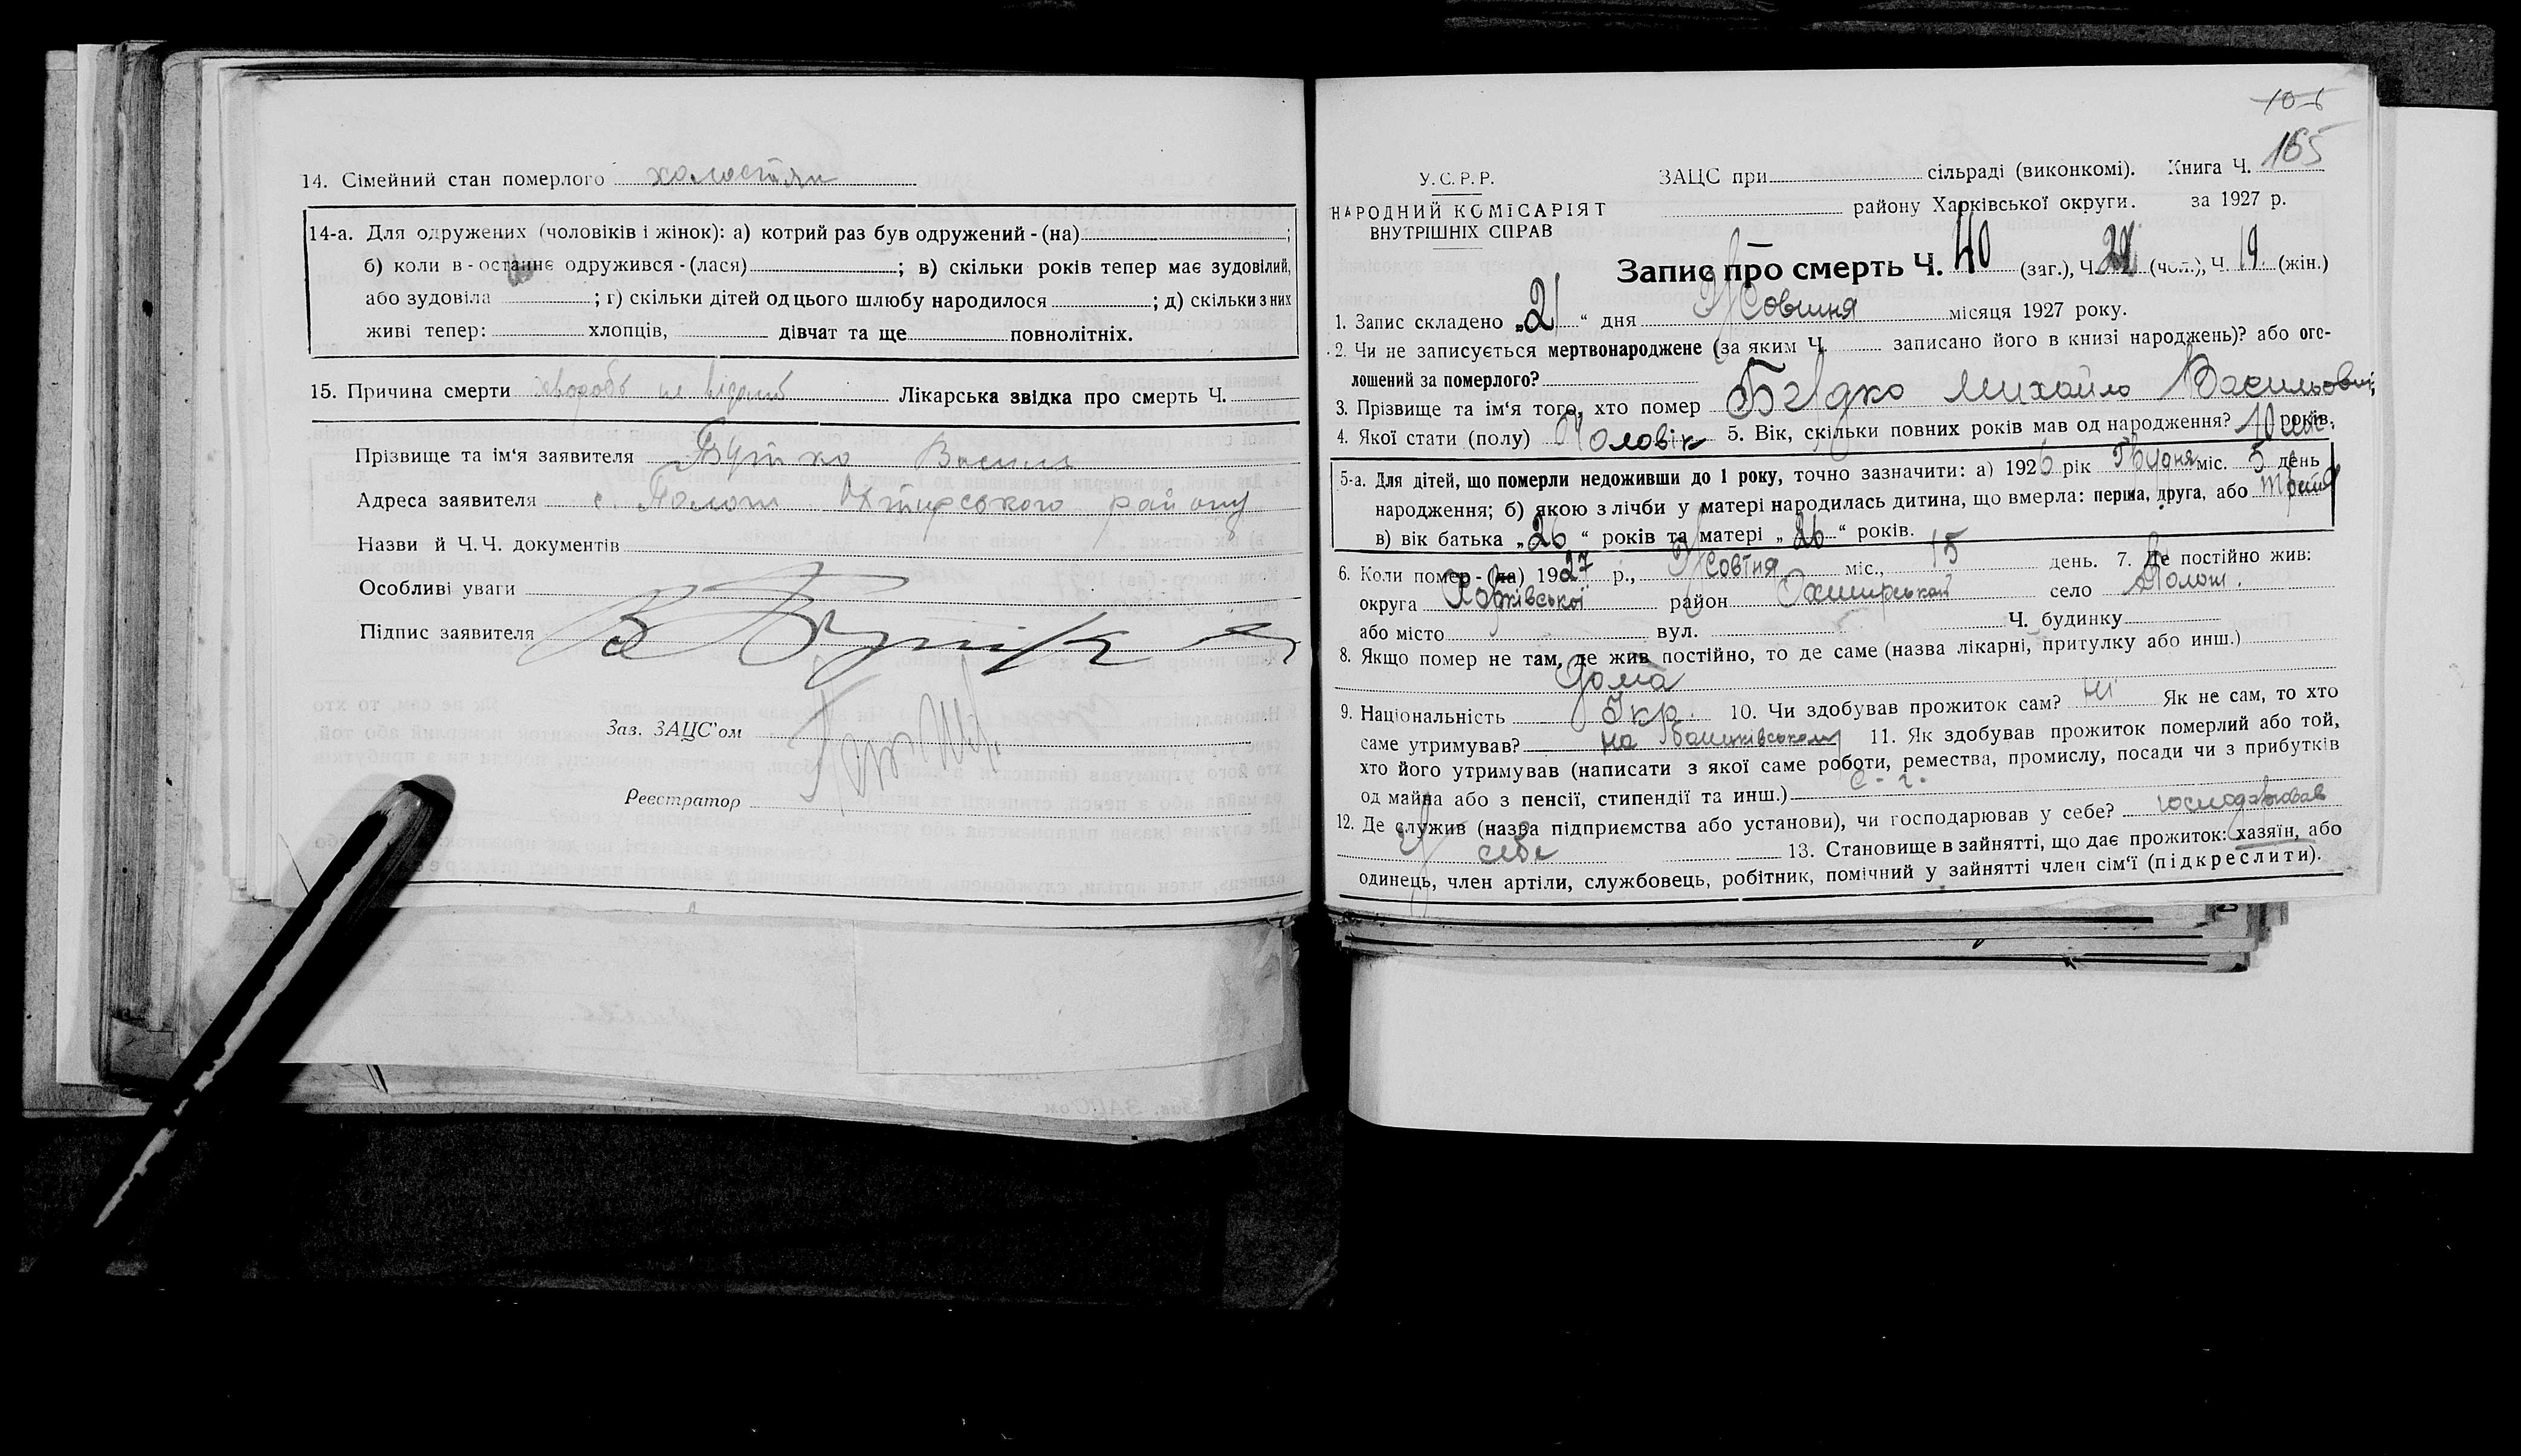 14. Сімейний стан померлого холостяк
14-а. Для одружених (чоловіків і жінок): а) котрий раз був одружений - (на) ;
б) коли в - останнє одружився - (лася) ; в) скільки років тепер має зудовілий,
або зудовіла ; г) скільки дітей од цього шлюбу народилося ; д) скільки з них
живі тепер: хлопців, дівчат та ще повнолітніх.
15. Причина смерти Лікарська звідка про смерть Ч.
Прізвище та ім'я заявителя Василь
Адреса заявителя с. Охтирського району
Назви й Ч.Ч. документів
Особливі уваги
Підпис заявителя
Зав. ЗАЦС'ом
Реєстратор
165
У.С.Р.Р. ЗАЦС при сільраді (виконкомі). Книга Ч.
НАРОДНИЙ КОМІСАРІЯТ району Харківської округи. за 1927 р.
ВНУТРІШНІХ СПРАВ
Запис про смерть Ч. 40 (заг.), Ч. 21 (чол.), Ч. 19. (жін.)
1. Запис складено „21" дня Жовтня місяця 1927 року.
2. Чи не записується мертвонароджене (за яким Ч. записано його в книзі народжень)? або ого-
лошений за померлого?
3. Прізвище та ім'я того, хто помер Михайло Васильович
4. Якої стати (полу) Чоловік 5. Вік, скільки повних років мав од народження? 10 років.
5-а. Для дітей, що померли недоживши до 1 року, точно зазначити: а) 1926 рік Грудня міс. 5 день
народження; б) якою з лічби у матері народилась дитина, що вмерла: перша, друга, або
в) вік батька „26" років та матері „26" років.
6. Коли помер - (ла) 1927 р., Жовтня міс., 15 день. 7. Де постійно жив:
округа Харківської район Охтирський село
або місто вул. Ч. будинку
8. Якщо помер не там, де жив постійно, то де саме (назва лікарні, притулку або инш.)
Дома
9. Національність Укр. 10. Чи здобував прожиток сам? ні Як не сам, то хто
саме утримував? на 11. Як здобував прожиток померлий або той,
хто його утримував (написати з якої саме роботи, ремества, промислу, посади чи з прибутків
од майна або з пенсії, стипендії та инш.) с. - г.
12. Де служив (назва підприємства або установи), чи господарював у себе? господарював
у себе 13. Становище в зайнятті, що дає прожиток: хазяїн, або
одинець, член артіли, службовець, робітник, помічний у зайнятті член сім'ї (підкреслити).